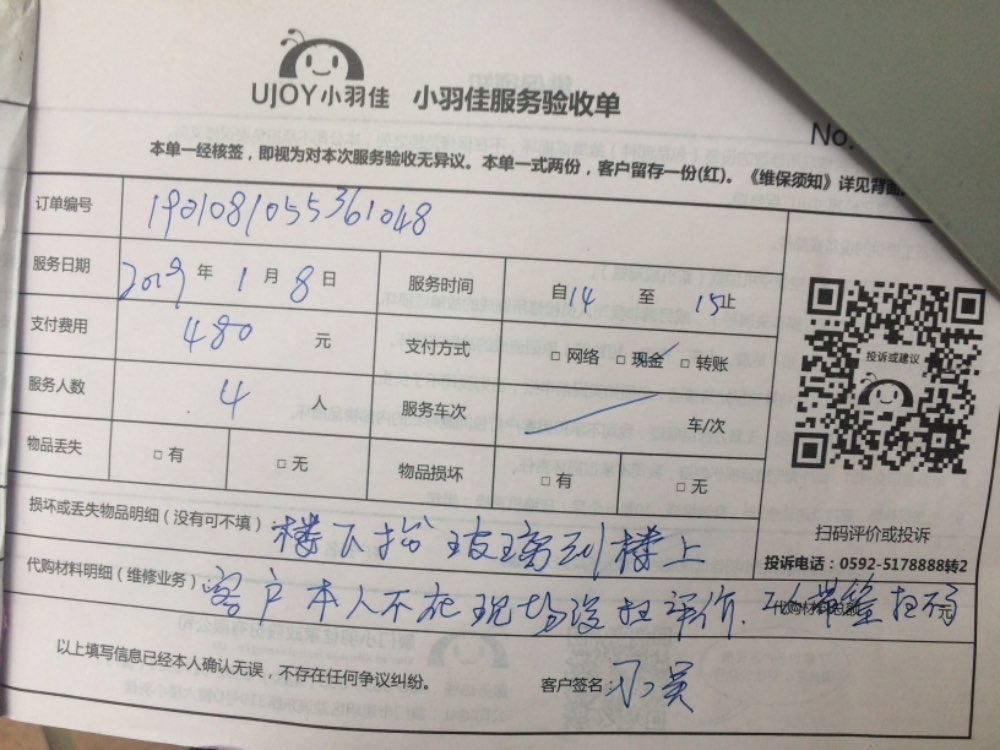 UJOY小羽佳 小羽佳服务验收单
No.
本单一经核签，即视为对本次服务验收无异议。本单一式两份，客户留存一份(红)。《维保须知》详见背面
订单编号 1901081055361048
服务日期 2019 年 1 月 8 日 服务时间 自14 至 15止
支付费用 480 元 支付方式 □ 网络 □ 现金 □ 转账
投诉或建议
服务人数 4 人 服务车次 车/次
物品丢失 □ 有 □ 无 物品损坏 □ 有 □ 无
扫码评价或投诉
投诉电话：0592-5178888转2
损坏或丢失物品明细（没有可不填） 楼下抬玻璃到楼上
代购材料明细（维修业务）： 客户本人不在现场没扫评价.
以上填写信息已经本人确认无误，不存在任何争议纠纷。 客户签名: